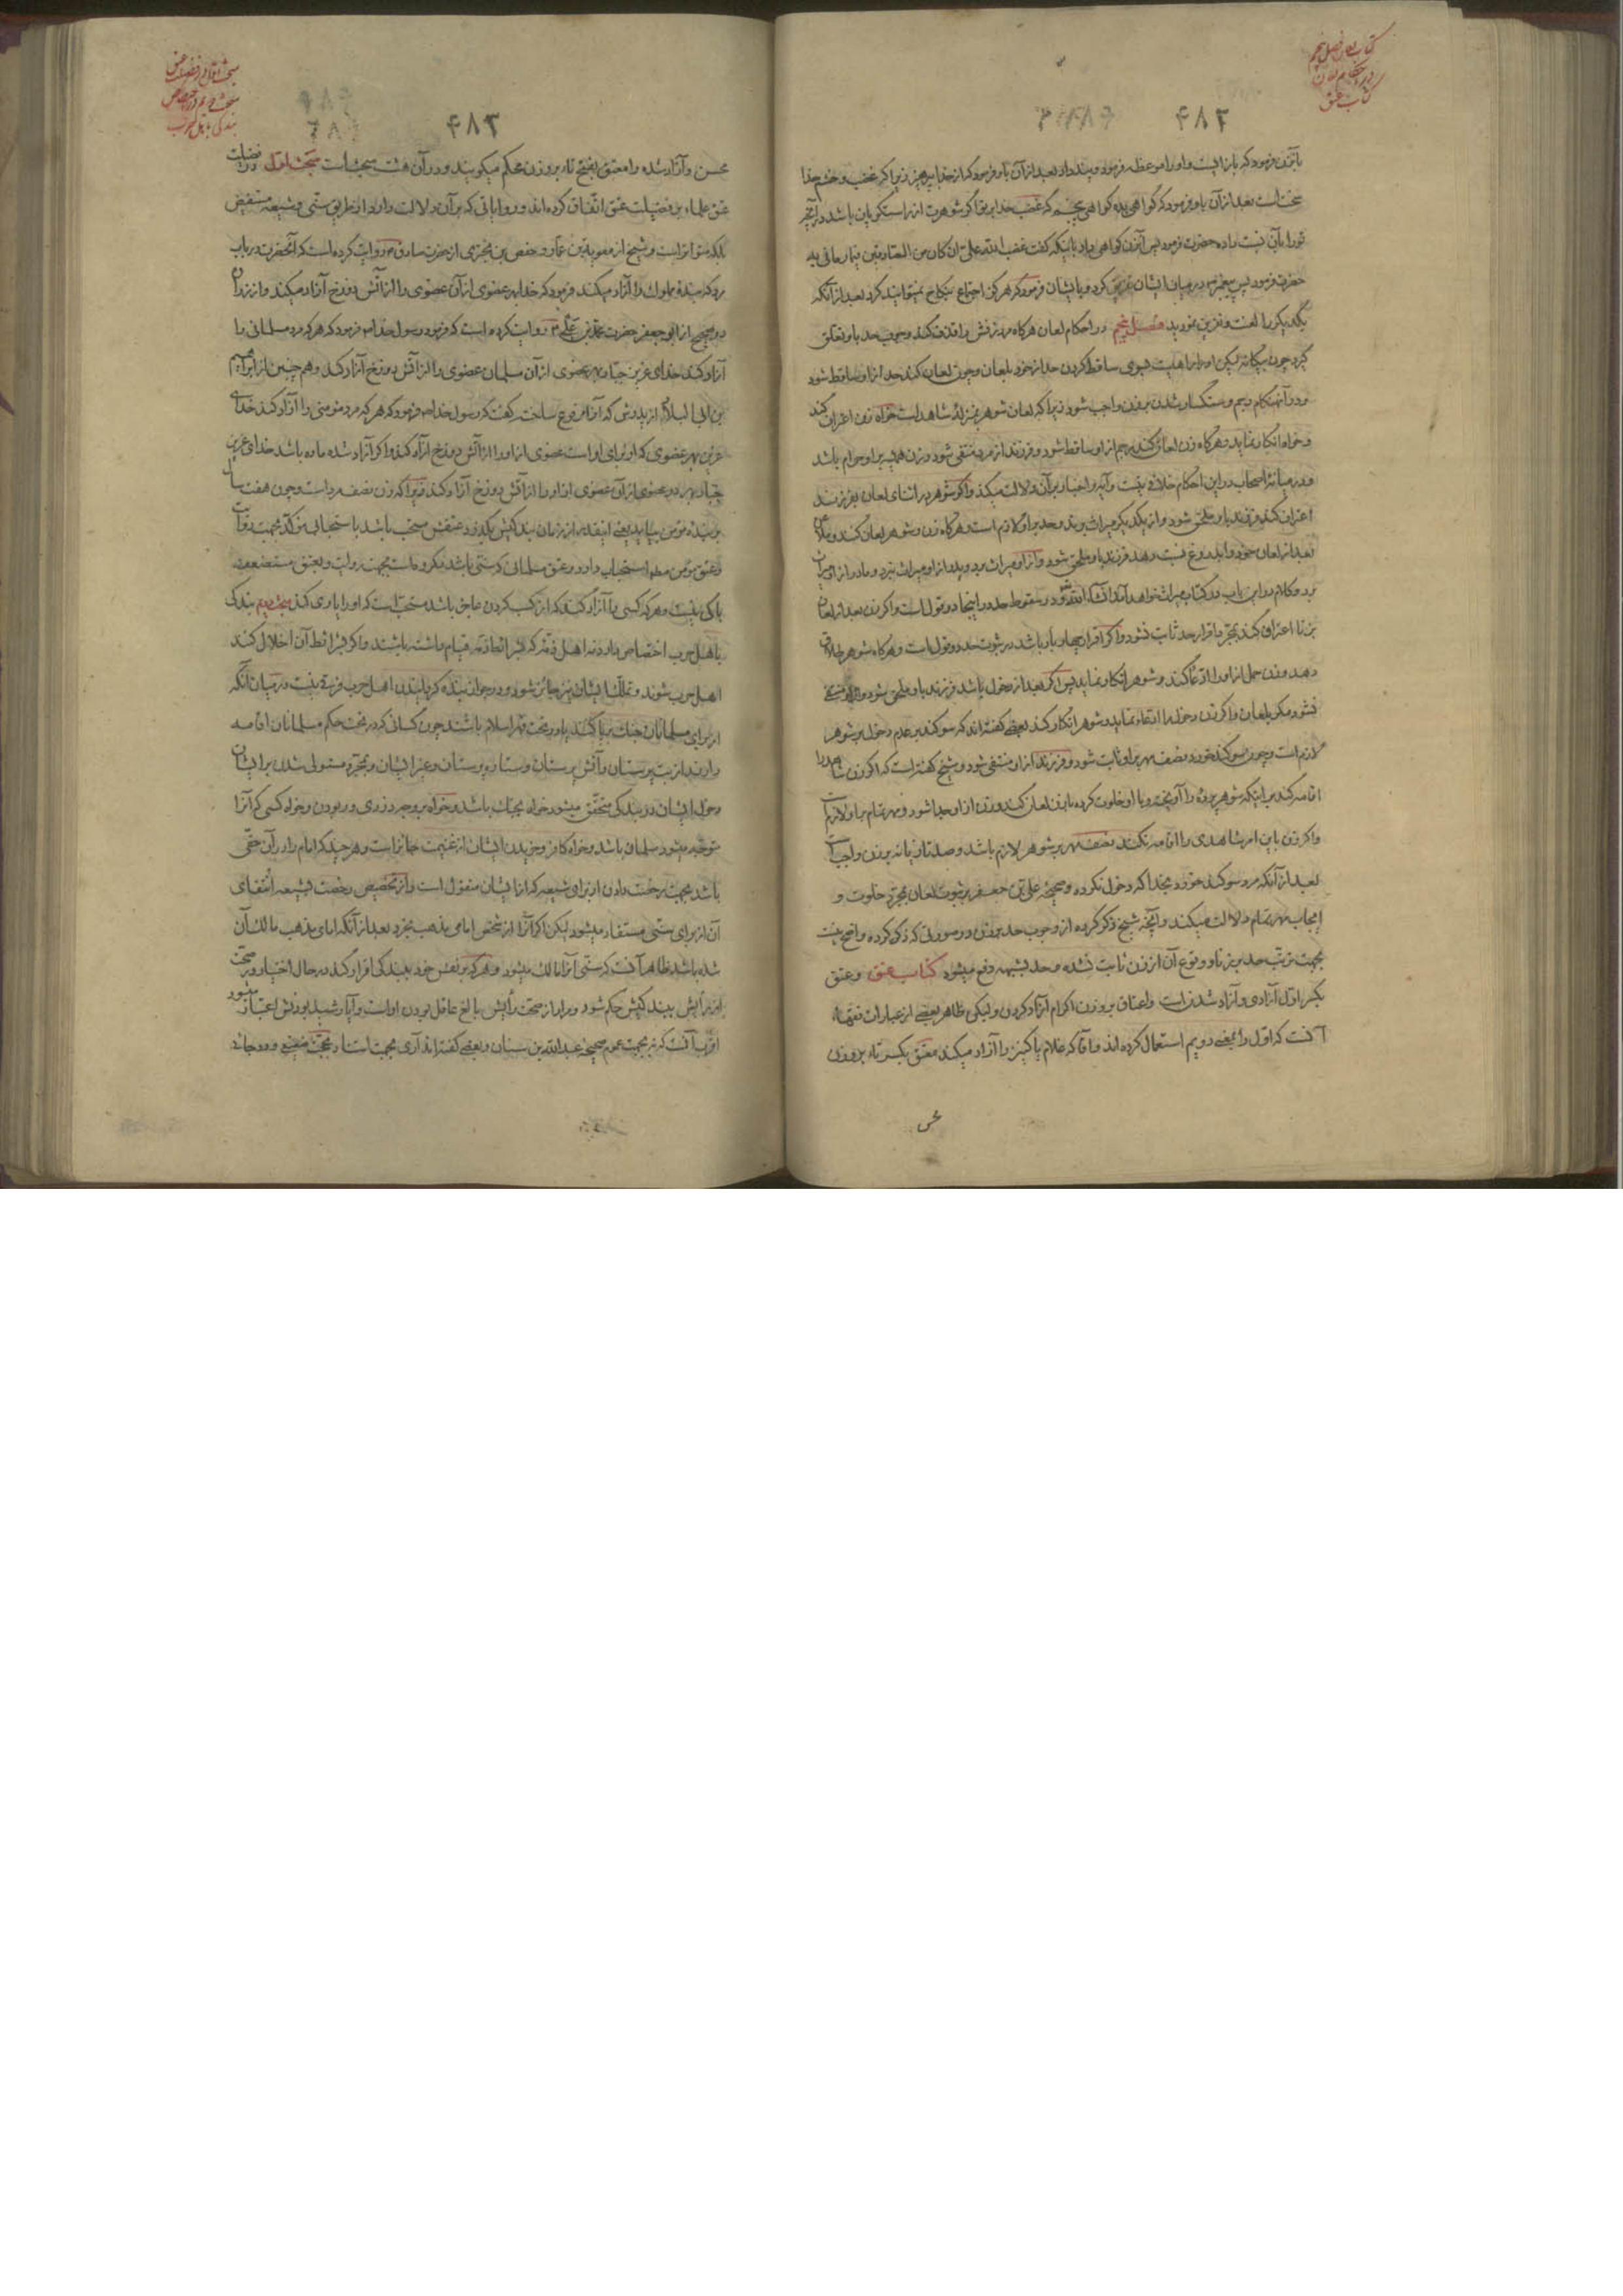 کتاب لعان فصل پنجم
در احکام لعان
کتاب عتق
۴۸۲
بآنزن فرمود که باز ایست و او را موعظه فرمود و پند داد بعد از آن باو فرمود که از خدا بپرهیز زیرا که غضب و خشم خدا
سخت است بعد از آن باو فرمود که گواهی بده گواهی پنجم که غضب خدا بر تو اگر شوهرت از راستگویان باشد در آنچه
تو را بآن نسبت داده حضرت فرمود پس آنزن گواهی داد باینکه گفت غضب الله علی ان کان من الصادقین فیما رمانی به
حضرت فرمود پس پیغمبر ص در میان ایشان تفریق کرد و بایشان فرمود که هرگز اجتماع بنکاح نمیتوانید کرد بعد از آنکه
یکدیگر را لعنت و نفرین نمودید فصل پنجم در احکام لعان هرگاه مرد زنش را قذف کند وجوب حد باو تعلق
گیرد چون بیگانه لیکن او را اهلیت ساقط کردن حد از خود بلعان و چون لعان کند حد از او ساقط شود
و در آنهنگام رجم و سنگسار شدن بر زن واجب شود زیرا که لعان شوهر بمنزلهٔ شاهد است خواه زن اعتراف کند
و خواه انکار نماید و هرگاه زن لعان کند رجم از او ساقط شود و فرزند از مرد منتفی شود و زن همیشه بر او حرام باشد
و در میانهٔ اصحاب در این احکام خلافی نیست و آیه و اخبار بر آن دلالت میکند و اگر شوهر در اثنای لعان بفرزند
اعتراف کند فرزند باو ملحق شود و از یکدیگر میراث برند و حد بر او لازم است و هرگاه زن و شوهر لعان کنند و
بعد از لعان خود را بدروغ نسبت دهد فرزند باو ملحق شود و از او میراث برد و پدر از او میراث نبرد و مادر از او میراث
برد و کلام در این باب در کتاب میراث خواهد آمد انشاء الله و در سقوط حد در اینجا دو قول است و اگر زن بعد از لعان
بزنا اعتراف کند بمجرد اقرار حد ثابت نشود و اگر اقرار چهار بار باشد در ثبوت حد دو قول است و هرگاه شوهر طلاق
دهد و زن حمل از او را ادعا کند و شوهر انکار نماید پس اگر بعد از دخول باشد فرزند باو ملحق شود و از او منتفی
نشود مگر بلعان و اگر زن دخول را ادعا نماید و شوهر انکار کند بعضی گفته‌اند که سوگند بر عدم دخول بر شوهر
لازم است و چون سوگند خورد نصف مهر بر او ثابت شود و فرزند از او منتفی شود و شیخ گفته است که اگر زن شاهد را
اقامه کند بر اینکه شوهر پرده را آویخته و با او خلوت کرده با زن لعان کند و زن از او جدا شود و مهر تمام بر او لازم است
و اگر زن باین امر شاهدی را اقامه نکند نصف مهر بر شوهر لازم باشد و صد تازیانه بر زن واجب است
بعد از آنکه مرد سوگند خورد بخدا که دخول نکرده و صحیحهٔ علی بن جعفر بر ثبوت لعان بمجرد خلوت و
ایجاب مهر تمام دلالت میکند و آنچه شیخ ذکر کرده از وجوب حد بر زن در صورتی که ذکر کرده واضح نیست
بجهت ترتب حد بر زنا و وقوع آن از زن ثابت نشده و حد بشبهه دفع میشود کتاب عتق و عتق
بکسر اول آزادی و آزاد شدن است و اعتاق بر وزن اکرام آزاد کردن و لیکن ظاهر بعضی از عبارات فقهاء
آنست که اول را بمعنی دویم استعمال کرده‌اند و آقا که غلام یا کنیز را آزاد میکند معتق بکسر تاء بر وزن
محسن
مبحث اول در فضیلت عتق
مبحث دویم در اختصاص
بندگی باهل حرب
۴۸۳
محسن و آزاد شده را معتق بفتح تاء بر وزن محکم میگویند و در آن هشت مبحث است مبحث اول در فضیلت
عتق علماء بر فضیلت عتق اتفاق کرده‌اند و روایاتی که بر آن دلالت دارد از طریق سنی و شیعه مستفیض
بلکه متواتر است و شیخ از معویة بن عمار و حفص بن بختری از حضرت صادق ع روایت کرده است که آنحضرت در باب
مردی که بندهٔ مملوک را آزاد میکند فرمود که خدا بهر عضوی از آن عضوی را از آتش دوزخ آزاد میکند و از زرارهٔ
در صحیح از ابو جعفر حضرت محمد بن علی ع روایت کرده است که فرمود رسول خدا ص فرمود که هر که مرد مسلمانی را
آزاد کند خدای عزیز جبار بهر عضوی از آن مسلمان عضوی را از آتش دوزخ آزاد کند و هم چنین از ابراهیم
بن ابی البلاد از پدرش که آنرا مرفوع ساخت گفت که رسول خدا ص فرمود که هر که مرد مؤمنی را آزاد کند خدای
عزیز بهر عضوی که او برای او است عضوی از او را از آتش دوزخ آزاد کند و اگر آزاد شده ماده باشد خدای عزیز
جبار بهر دو عضوی از آن عضوی از او را از آتش دوزخ آزاد کند زیرا که زن نصف مرد است و چون هفت سال
بر بنده مؤمن بیاید یعنی اینقدر از زمان بندگیش بگذرد عتقش مستحب باشد باستحبابی مؤکد بجهت روایات
و عتق مؤمن مطلقا استحباب دارد و عتق مسلمانی که سنی باشد مکروه است بجهت روایت و بعتق مستضعف
باکی نیست و هر که کسی را آزاد کند که از کسب کردن عاجز باشد مستحب است که او را یاری کند مبحث دویم بندگی
باهل حرب اختصاص دارد نه اهل ذمه که بشرائط ذمه قیام داشته باشند و اگر بشرائط آن اخلال کنند
اهل حرب شوند و تملک ایشان نیز جایز شود و در جواز بنده گردانیدن اهل حرب فرقی نیست در میان آنکه
از برای مسلمانان جنگ برپا کنند یا در تحت قهر اسلام باشند چون کسانی که در تحت حکم مسلمانان اقامه
دارند از بت پرستان و آتش پرستان و ستاره پرستان و غیر ایشان و بمجرد مستولی شدن بر ایشان
دخول ایشان در بندگی متحقق میشود خواه بجنگ باشد و خواه بر وجه دزدی و ربودن و خواه کسی که آنرا
متوجه میشود مسلمان باشد و خواه کافر و خریدن ایشان از غنیمت جائز است و هر چند که امام را در آن حقی
باشد بجهت رخصت دادن از برای شیعه که از ایشان منقول است و از تخصیص رخصت بشیعه انتفای
آن از برای سنی مستفاد میشود لیکن اگر آنرا از شخص امامی مذهب بخرد بعد از آنکه امامی مذهب مالک آن
شده باشد ظاهر آنست که سنی آنرا مالک میشود و هر که بر نفس خود ببندگی اقرار کند در حال اختیار و صحت
از برایش ببندگیش حکم شود و مراد از صحت رأیش بالغ عاقل بودن او است و آیا رشید بودنش اعتبار میشود
اقرب آنست که نه بجهت عموم صحیحهٔ عبدالله بن سنان و بعضی گفته‌اند آری بجهت استناد